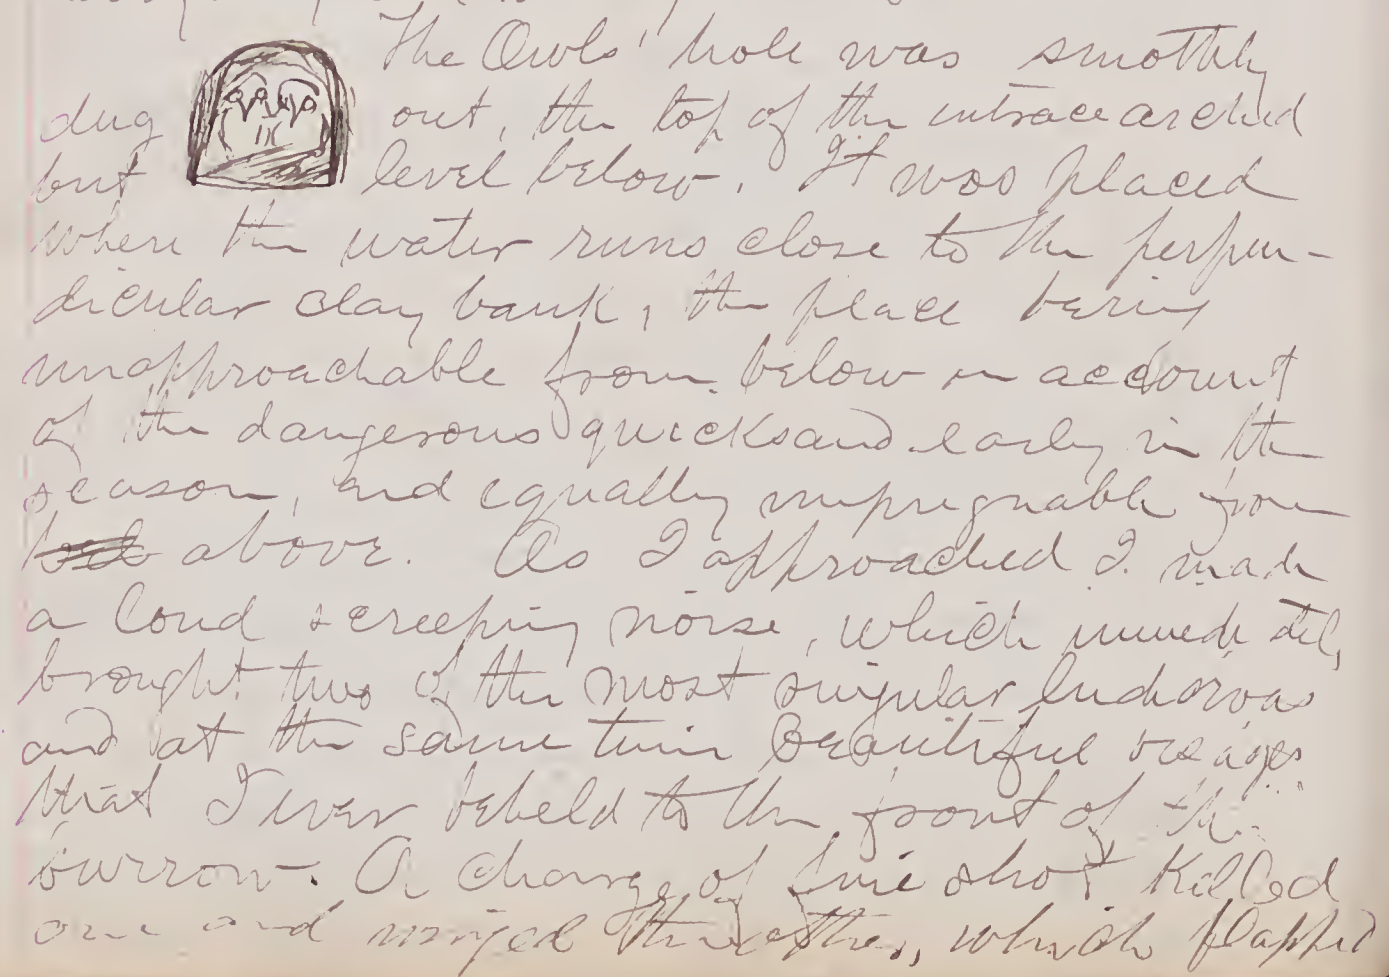 The Owls' hole was smothly
dug out, the top of the entrace arched
but level below. It was placed
where the water runs close to the perpen-
dicular clay bank, the place being
unapproachable from below on account
of the dangerous quicksand early in the
season, and equally impregnable from
above. As I approached I made
a loud screeping noise, which immediately
brought two of the most singular ludicrous
and at the same time beautiful visages
that I ever beheld to the front of the
burrow. A charge of fine shot killed
one and winged the other, which flapped